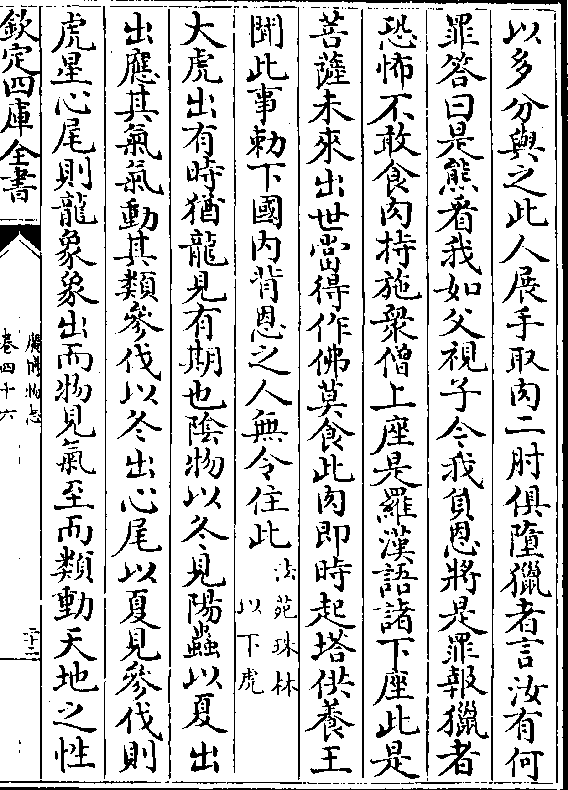 以多分與之此人展手取肉二肘俱墮獵者言汝有何
罪答曰是熊看我如父視子今我負恩將是罪報獵者
恐怖不敢食肉持施衆僧上座是羅漢語諸下座此是
菩薩未來出世當得作佛莫食此肉即時起塔供養王
聞此事勅下國內背恩之人無令住此法苑珠林以下虎
大虎出有時猶龍見有期也陰物以冬見陽蟲以夏出
出應其氣氣動其類參伐以冬出心尾以夏見參伐則
虎星心尾則龍象象出而物見氣至而類動天地之性
欽定四庫全書
廣博物志
卷四十六
二十二